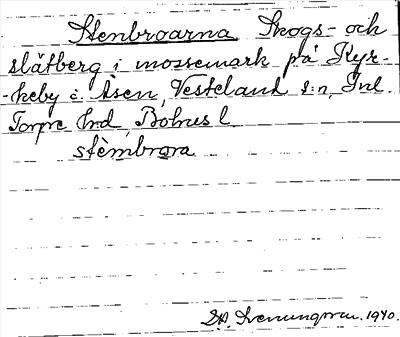 Stenbroarna Skogs- och
slåtberg i mossemark på Kyr-
keby i Åsen, Vesteland s:n, Inl.
Torpe hd, Bohus l.
stèmbrora
S.A. Svenungsson. 1940.